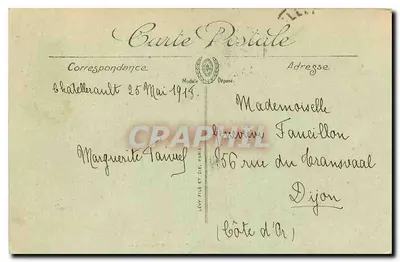 Carte Postale
Correspondance
Adresse
Modèle Déposé
Chatellerault 25 Mai 1915.
Mademoiselle
Faueillon
Marguerite
56 rue du Transvaal
Dijon
(Côte d'Or)
LÉVY FILS ET CIE, PARIS
CPAPHIL